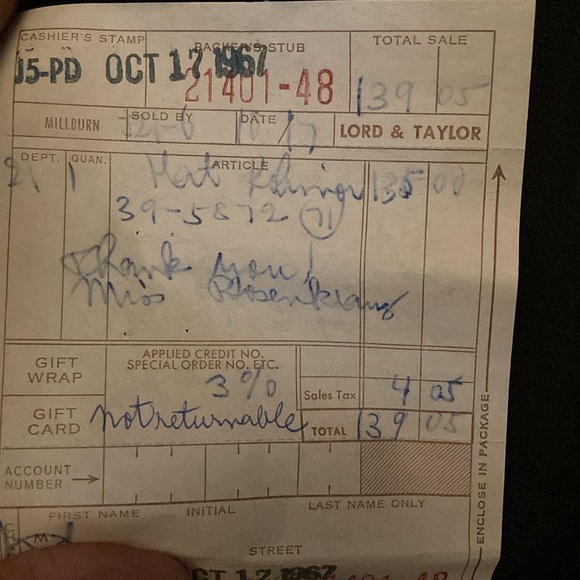 CASHIER'S STAMP PACKER'S STUB TOTAL SALE
J5-PD OCT 17 1967
21401-48 139 05
MILLBURN SOLD BY DATE 10/17 LORD & TAYLOR
DEPT. QUAN. ARTICLE
1 135 00
39-5872 (71)
Thank you!
Miss Rosenkranz
GIFT WRAP
APPLIED CREDIT NO.
SPECIAL ORDER NO. ETC.
3% Sales Tax 4 05
GIFT CARD notreturnable TOTAL 139 05
ACCOUNT NUMBER
FIRST NAME INITIAL LAST NAME ONLY
M
STREET
OCT 17 1967
ENCLOSE IN PACKAGE